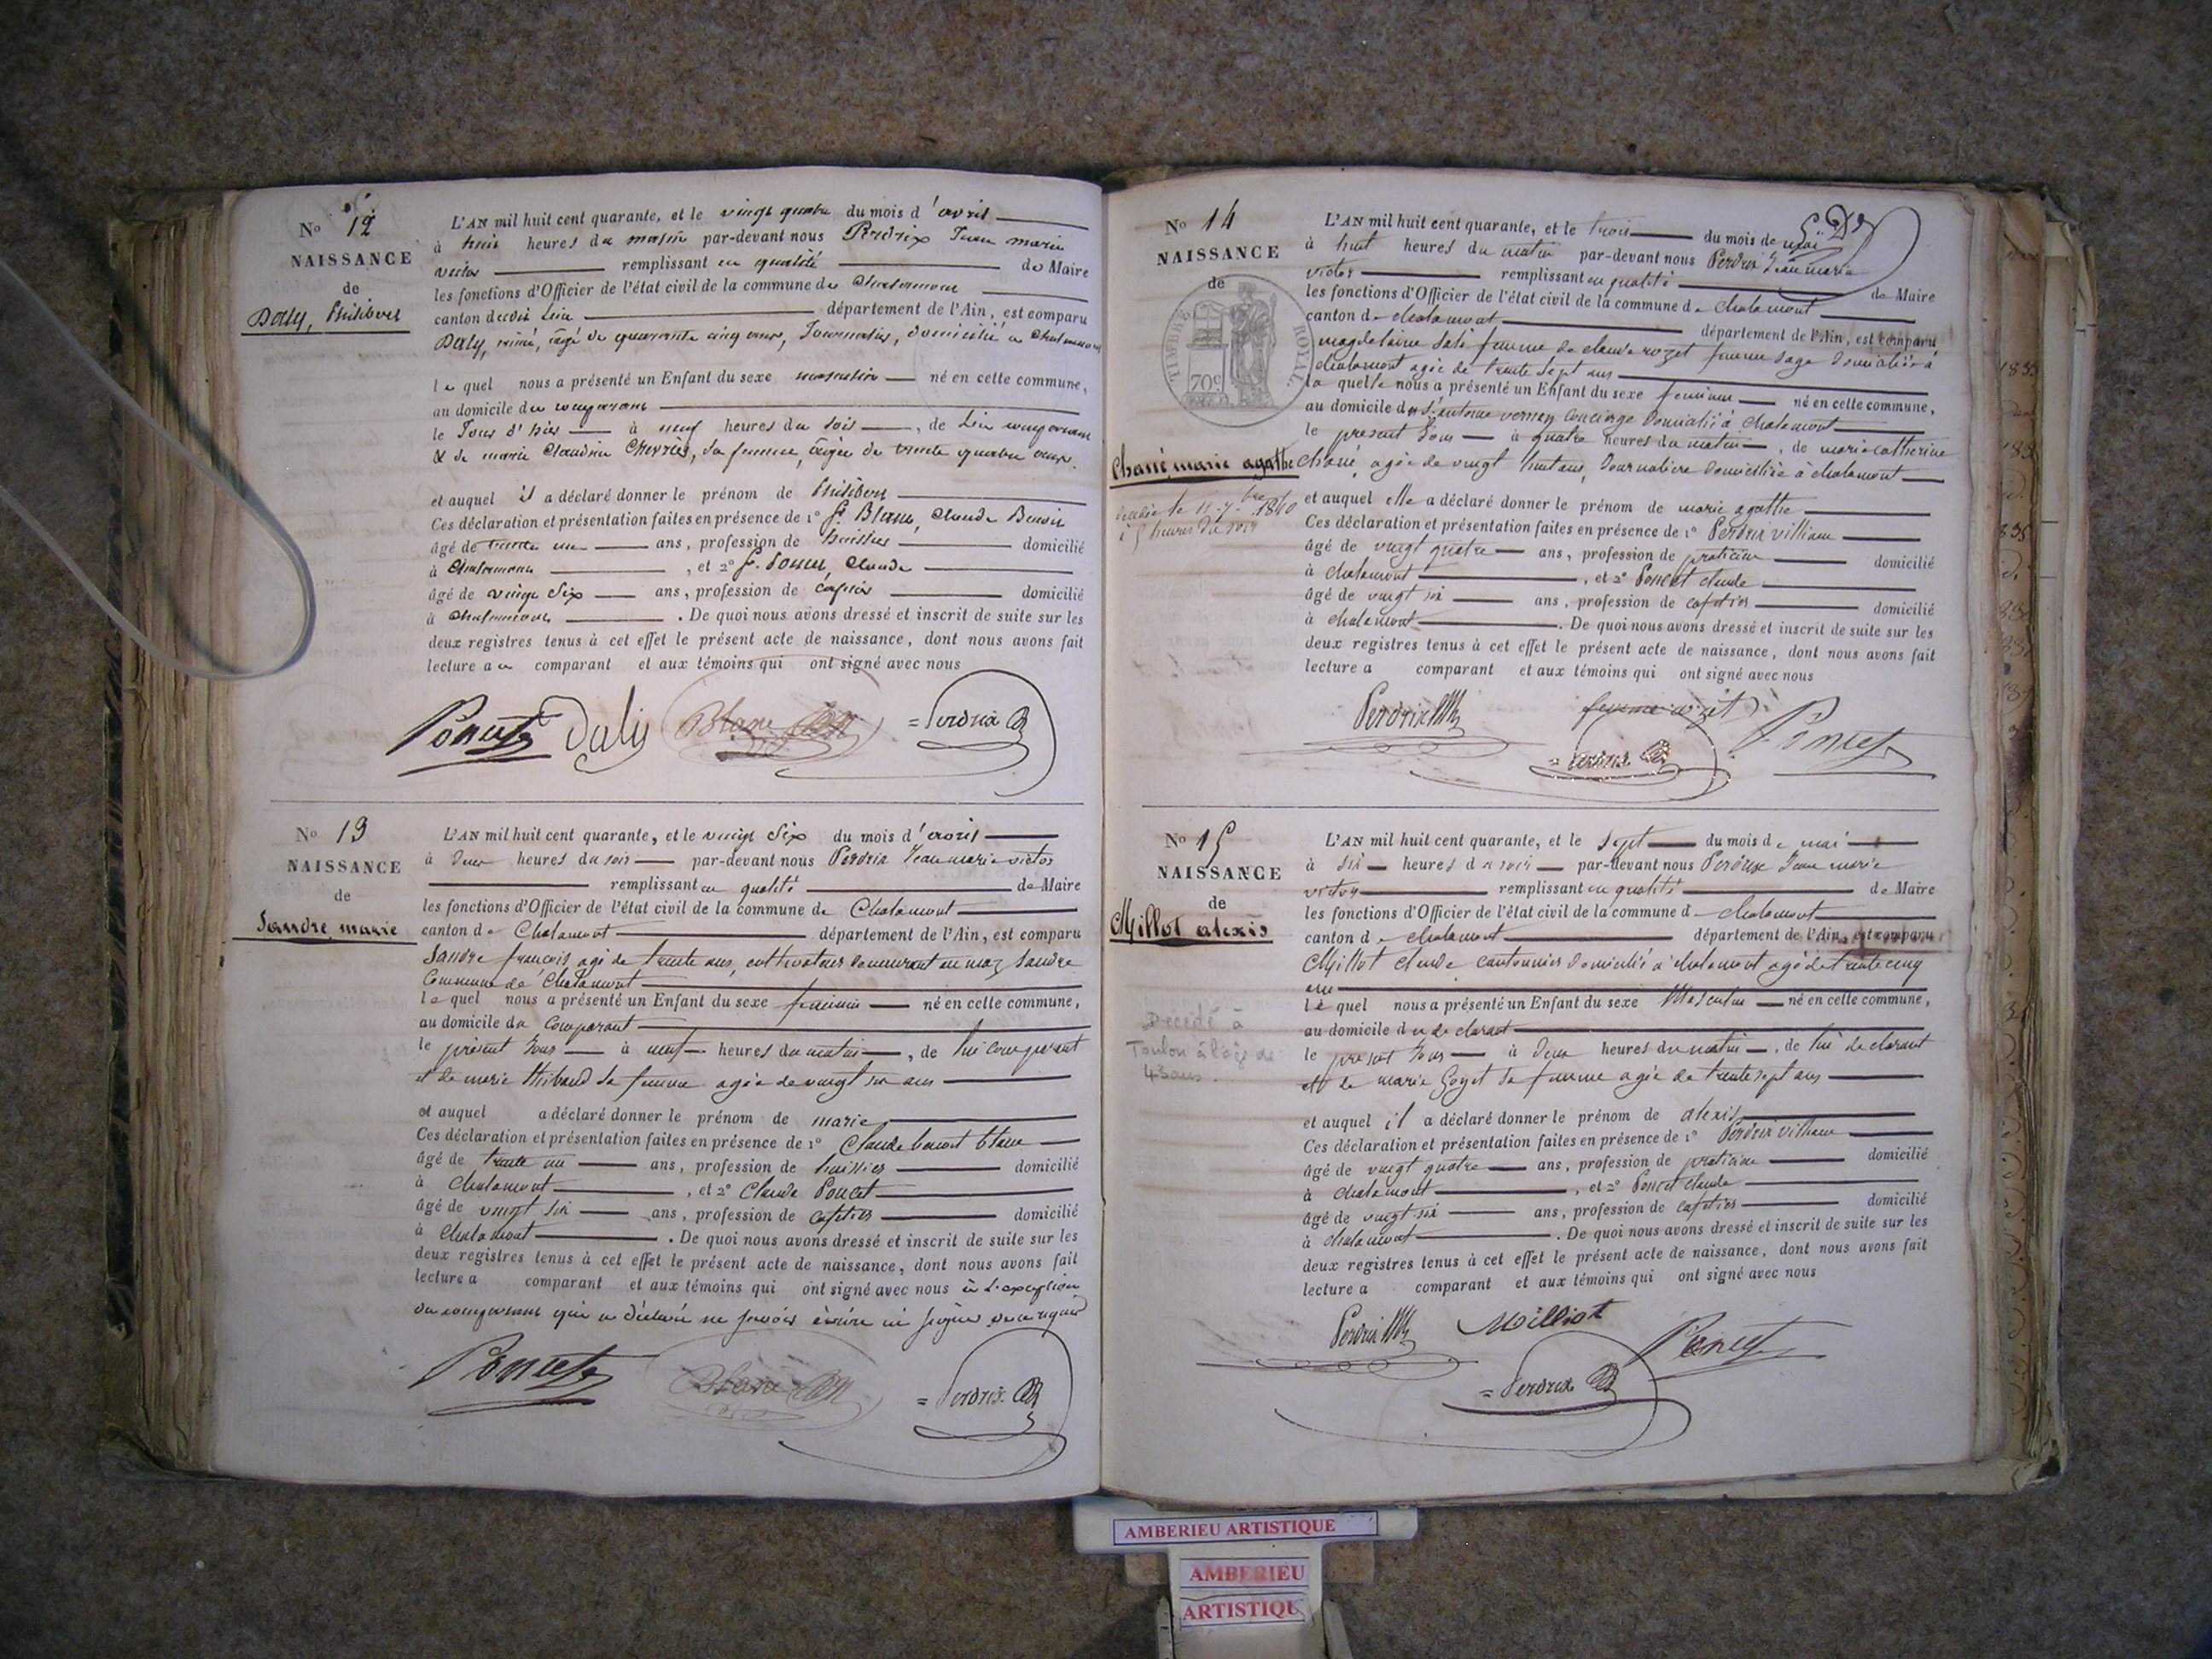 No 12
NAISSANCE
de
Daly, Philibert
L'AN mil huit cent quarante, et le vingt quatre du mois d'avril
à huit heures du matin par-devant nous Perdrix Jean marie
victor remplissant en qualité de Maire
les fonctions d'Officier de l'état civil de la commune de Chalamont
canton dudit lieu département de l'Ain, est comparu
Daly, âgé de quarante cinq ans, Journalier, domicilié à Chalamont
le quel nous a présenté un Enfant du sexe masculin né en cette commune,
au domicile du comparant
le Jour d'hier à neuf heures du soir, de lui comparant
& de marie Claudine sa femme, âgée de trente quatre ans.
et auquel il a déclaré donner le prénom de Philibert
Ces déclaration et présentation faites en présence de 1° Sr. Blanc, Claude Benoit
âgé de trente un ans, profession de huissier domicilié
à Chalamont, et 2° Sr. Poncet, Claude
âgé de vingt six ans, profession de cafetier domicilié
à Chalamont. De quoi nous avons dressé et inscrit de suite sur les
deux registres tenus à cet effet le présent acte de naissance, dont nous avons fait
lecture au comparant et aux témoins qui ont signé avec nous
Poncet Daly Blanc =Perdrix
No 13
NAISSANCE
de
Sandre marie
L'AN mil huit cent quarante, et le vingt Six du mois d'avril
à deux heures du soir par-devant nous Perdrix Jean marie victor
remplissant en qualité de Maire
les fonctions d'Officier de l'état civil de la commune de Chalamont
canton de Chalamont département de l'Ain, est comparu
Sandre françois agé de trente ans, cultivateur demeurant au maz Sandre
Commune de Chalamont
le quel nous a présenté un Enfant du sexe feminin né en cette commune,
au domicile du comparant
le présent Jour à heures du matin, de lui comparant
et de marie thibaud sa femme agée de vingt six ans
et auquel a déclaré donner le prénom de marie
Ces déclaration et présentation faites en présence de 1° Claude benoit blanc
âgé de trente un ans, profession de huissier domicilié
à Chalamont, et 2° Claude Poncet
âgé de vingt six ans, profession de cafetier domicilié
à Chalamont. De quoi nous avons dressé et inscrit de suite sur les
deux registres tenus à cet effet le présent acte de naissance, dont nous avons fait
lecture a comparant et aux témoins qui ont signé avec nous à l'exception
du comparant qui a déclaré ne savoir écrire ni signer de ce requis
Poncet Blanc =Perdrix
No 14
NAISSANCE
de
TIMBRE ROYAL
70c
Charié marie agathe
décédée le 11 7bre 1840
à 5 heures du soir
L'AN mil huit cent quarante, et le trois du mois de mai
à huit heures du matin par-devant nous Perdrix Jean marie
victor remplissant en qualité de Maire
les fonctions d'Officier de l'état civil de la commune de chalamont
canton de chalamont département de l'Ain, est comparu
magdelaine femme de claude rozet femme sage domiciliée à
chalamont agée de trente sept ans
la quelle nous a présenté un Enfant du sexe feminin né en cette commune,
au domicile du Sr antoine concierge domicilié à chalamont
le présent Jour à quatre heures du matin, de marie catherine
charié, agée de vingt huit ans, Journalière domiciliée à chalamont
et auquel elle a déclaré donner le prénom de marie agathe
Ces déclaration et présentation faites en présence de 1° Perdrix villiame
âgé de vingt quatre ans, profession de praticien domicilié
à chalamont, et 2° Poncet claude
âgé de vingt six ans, profession de cafetier domicilié
à chalamont. De quoi nous avons dressé et inscrit de suite sur les
deux registres tenus à cet effet le présent acte de naissance, dont nous avons fait
lecture a comparant et aux témoins qui ont signé avec nous
Perdrix femme Poncet
=Perdrix
No 15
NAISSANCE
de
Millot alexis
Décédé à
Toulon à l'age de
43 ans.
L'AN mil huit cent quarante, et le sept du mois de mai
à six heures du soir par-devant nous Perdrix Jean marie
victor remplissant en qualité de Maire
les fonctions d'Officier de l'état civil de la commune de chalamont
canton de chalamont département de l'Ain, est comparu
Millot claude cantonnier domicilié à chalamont agé de trente cinq
ans
le quel nous a présenté un Enfant du sexe Masculin né en cette commune,
au domicile du declarant
le present Jour à deux heures du matin, de lui declarant
et de marie Goyet sa femme agée de trente sept ans
et auquel il a déclaré donner le prénom de alexis
Ces déclaration et présentation faites en présence de 1° Perdrix villiame
âgé de vingt quatre ans, profession de praticien domicilié
à chalamont, et 2° Poncet claude
âgé de vingt six ans, profession de cafetier domicilié
à chalamont. De quoi nous avons dressé et inscrit de suite sur les
deux registres tenus à cet effet le présent acte de naissance, dont nous avons fait
lecture a comparant et aux témoins qui ont signé avec nous
Perdrix Milliot Poncet
=Perdrix
AMBERIEU ARTISTIQUE
AMBERIEU
ARTISTIQU